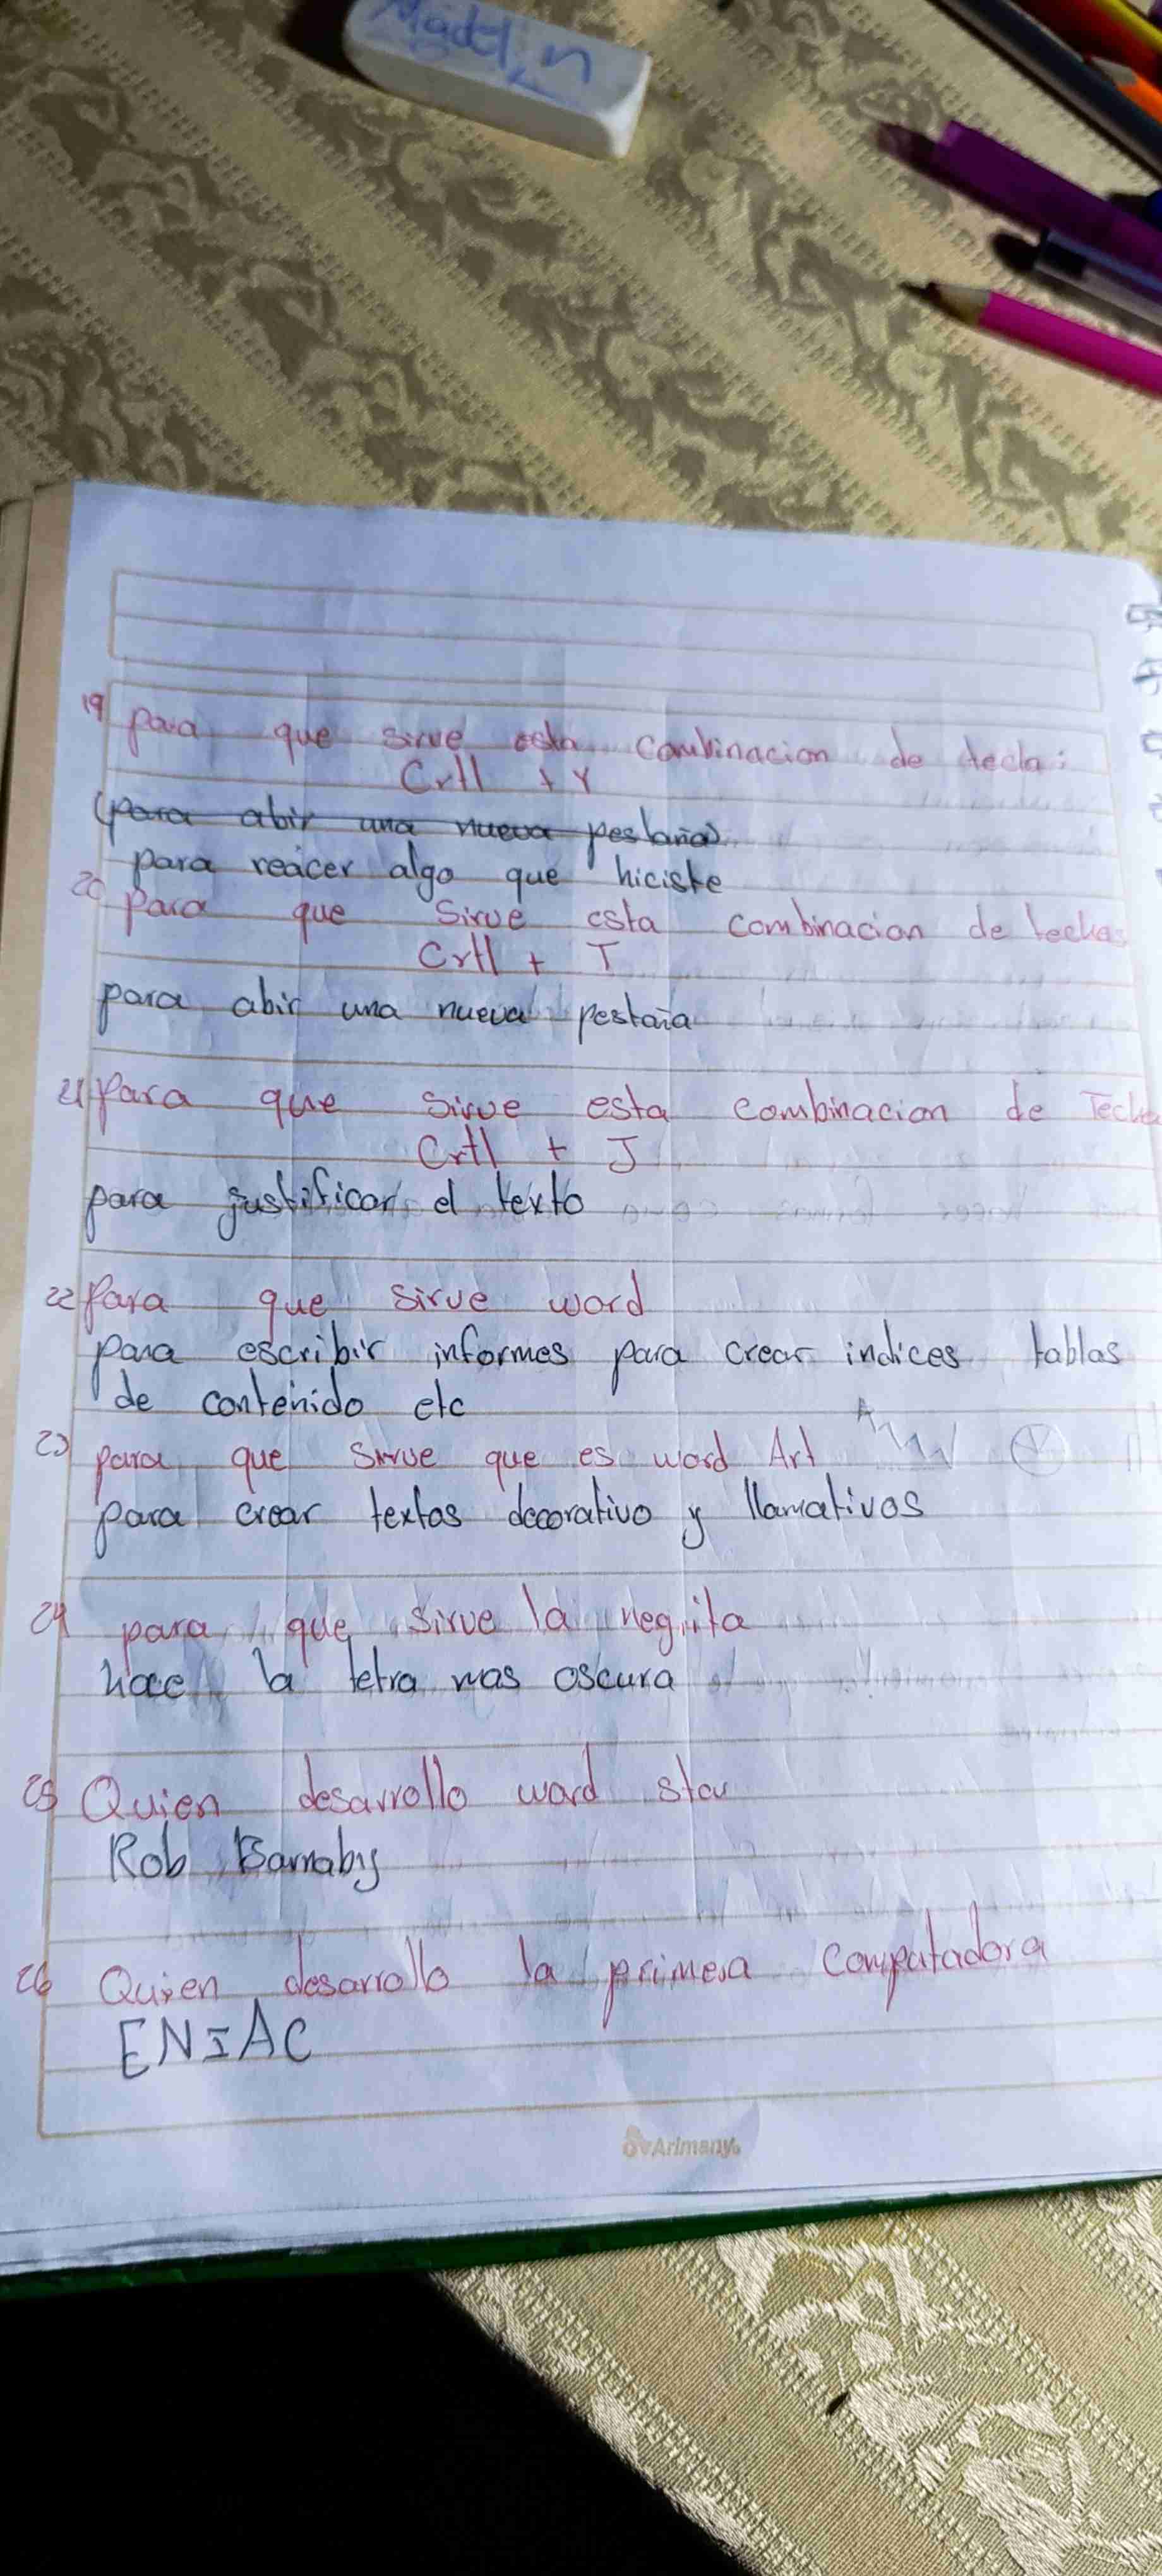 Madelin
19 para que sirve esta combinacion de tecla:
Crtl + Y
(para abir una nueva pestaña)
para reacer algo que hiciste
20 Para que Sirve esta combinacion de teclas
Crtl + T
para abir una nueva pestaña
21 Para que sirve esta combinacion de Tecla
Crtl + J
para justificar el texto
22 Para que sirve word
para escribir informes para crear indices tablas
de contenido etc
23 para que sirve que es word Art
para crear textos decorativo y llamativos
24 para que sirve la negrita
hace la letra mas oscura
25 Quien desarrollo word star
Rob Barnaby
26 Quien desarrollo la primera computadora
ENIAC
Arimany